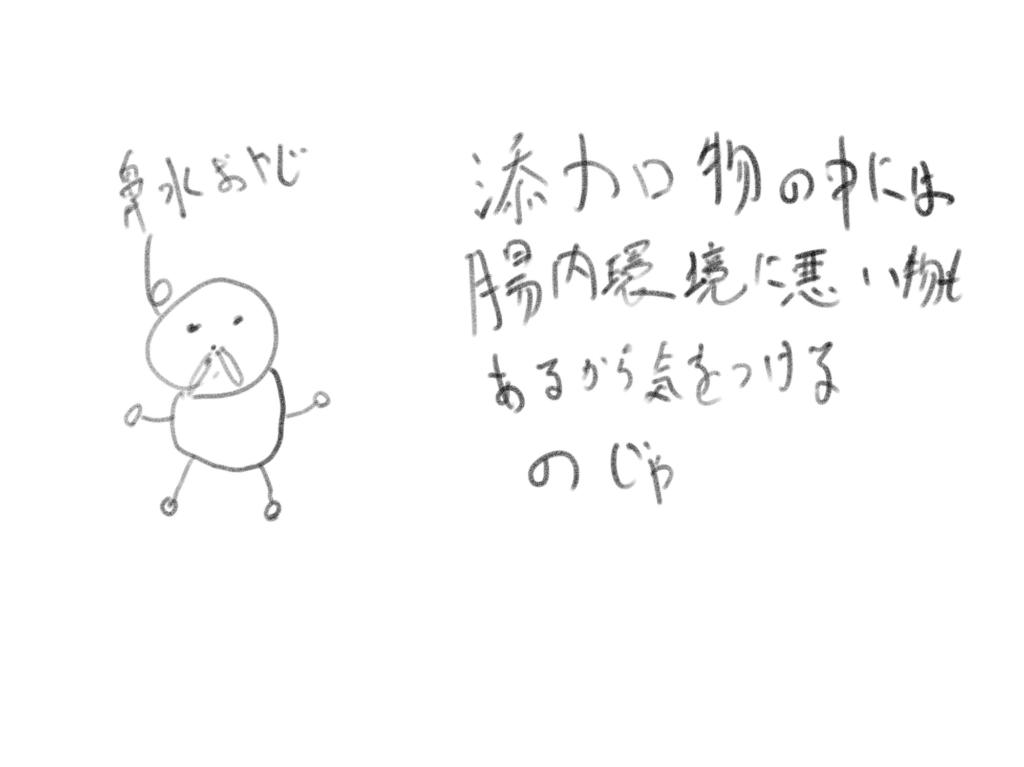 鼻水おやじ
添加物の中には
腸内環境に悪い物も
あるから気をつける
のじゃ